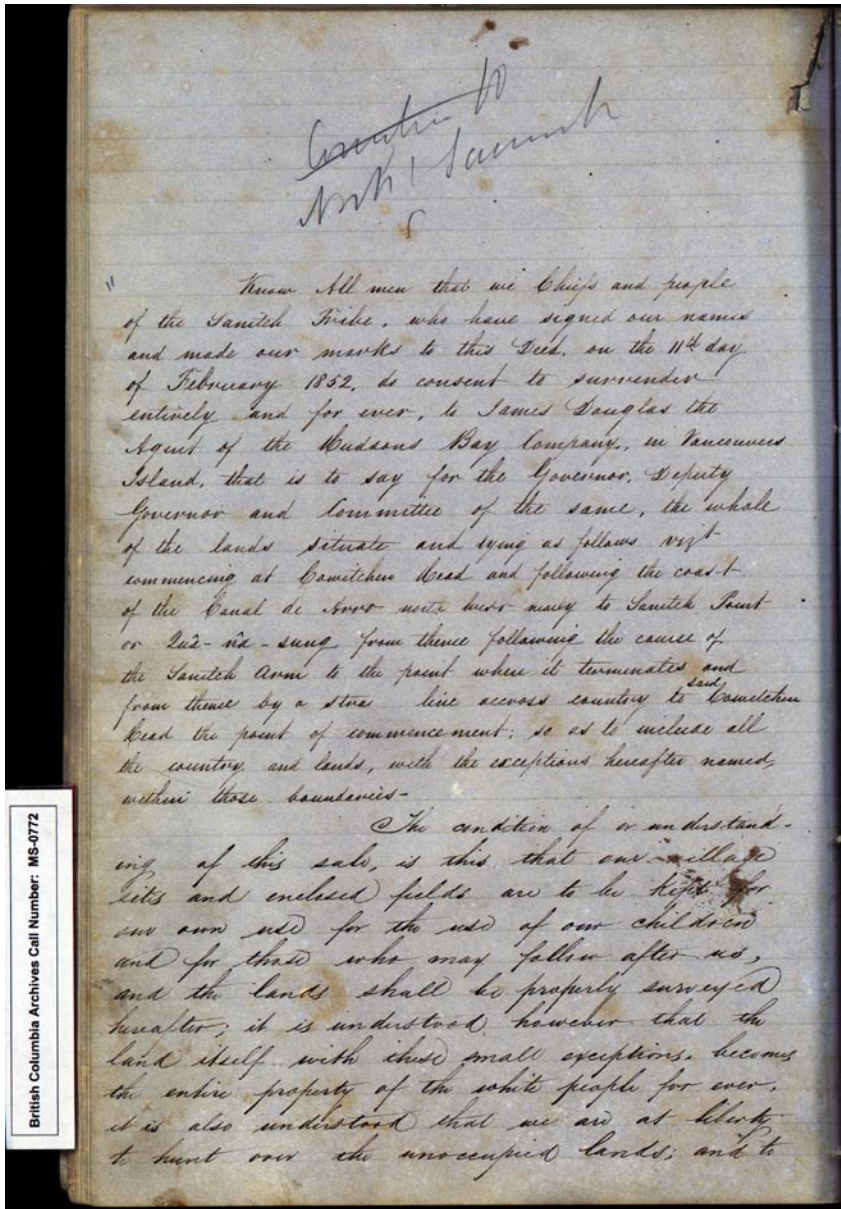 North Saanich
"
Know All men that we Chiefs and people
of the Sanitch Tribe, who have signed our names
and made our marks to this Deed, on the 11th day
of February 1852, do consent to surrender
entirely and for ever, to James Douglas the
Agent of the Hudsons Bay Company, in Vancouvers
Island, that is to say for the Governor, Deputy
Governor and Committee of the same, the whole
of the lands situate and lying as follows vizt
commencing at Cowitchen Head and following the coast
of the Canal de Arro north west nearly to Sanitch Point
or Quâ-nâ-sung from thence following the course of
the Sanitch Arm to the point where it terminates and
from thence by a stra line accross country to said Cowitchen
Head the point of commencement; so as to include all
the country and lands, with the exceptions hereafter named,
within those boundaries-
The condition of or understand-
ing of this sale, is this that our village
sites and enclosed fields are to be kept for
our own use for the use of our children
and for those who may follow after us,
and the lands shall be properly surveyed
hereafter; it is understood however that the
land itself with these small exceptions, becomes
the entire property of the white people for ever,
it is also understood that we are at liberty
to hunt over the unoccupied lands; and to
British Columbia Archives Call Number: MS-0772